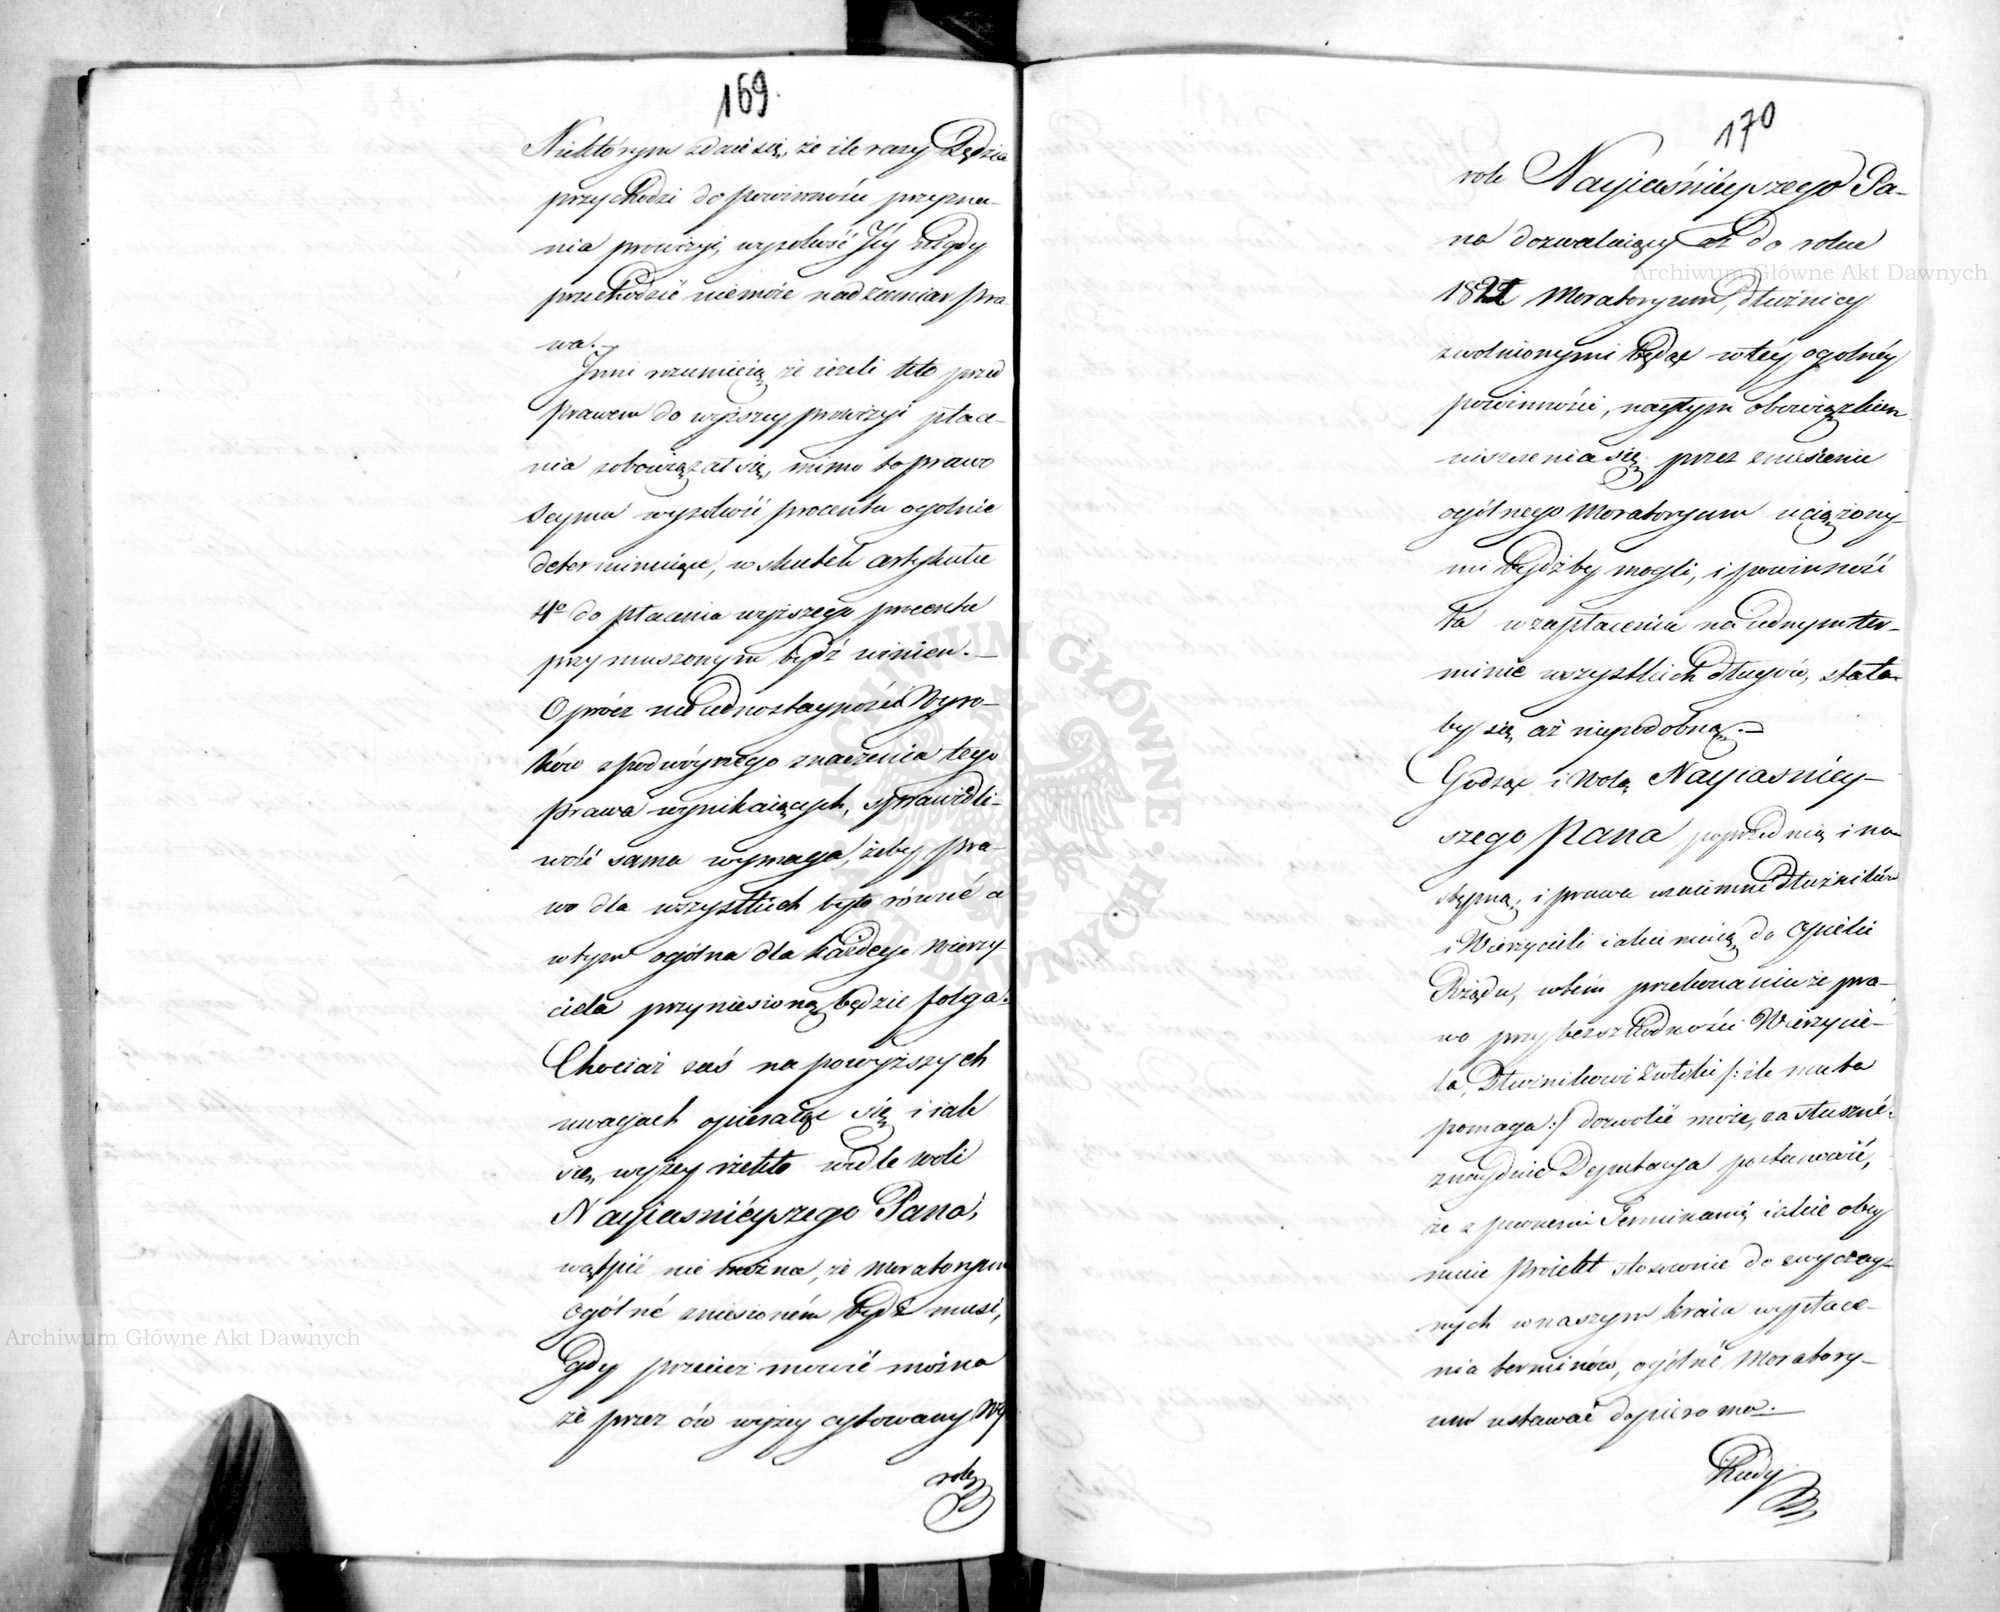 169.
Niektórym zdaie się, że ile razy Sędzia
przychodzi do powinności przyzna-
nia prowizyi, wysokość Jéy nigdy
przechodzić niemoże nad zamiar pra
wa.-
Inni rozumieią że ieżeli kto przed
prawem do wyższey prowizyi płace-
nia zobowiązał się, mimo to prawo
Seymu wysokość procentu ogolnie
determinuiące, w skutek artykułu
4º do płacenia wyższego procentu
przymuszonym bydź winien.-
Oprócz niejednostayności Wyro-
ków z podwóynego znaczenia tego
prawa wynikaiących, sprawiedli-
wość sama wymaga, żeby pra-
wo dla wszystkich było równé a
w tym ogólna dla każdego Wierzy
ciela przyniesioną będzie folga.
Chociaż zaś na powyższych
uwagach opieraiąc się i iak
się wyżey rzekło wedle woli
Nayiaśniéyszego Pana,
wątpić nie można, że Moratoryum
ogólné zniesioném bydź musi,
Gdy przecież mowić można
że przez ów wyżey cytowany Wy
rok
170
rok Nayiaśniéyszego Pa-
na dozwalaiący aż do roku
Moratoryum, dłużnicy
zwolnionymi będąc w téy ogolnéy
powinności, nagłym obowiązkiem
uiszczenia się przez zniesienie
ogólnego Moratoryum uciążony-
mi bydźby mogli, i powinność
ta w zapłaceniu na iednym ter-
minie wszystkich długów, stała-
by się aż niepodobną.-
Godząc i Wolą Nayiaśniéy-
szego Pana poprzednią i na-
stępną, i prawa wzaiemné Dłużników
i Wierzycieli iakie maią do Opieki
Rządu, w tém przekonaniu że pra-
wo przy bezszkodności Wierzycie-
la, Dłużnikowi Zwłoki /: ile mu ta
pomaga :/ dozwolić może, za słuszné
znayduie Deputacya postanowić,
że z pewnemi Terminami, iakie obey
muie Proiekt stosownie do zwyczay-
nych w naszym kraiu wypłace-
nia terminów, ogólné Moratory-
um ustawać dopiero ma.-
Kiedy
ARCHIWUM GŁÓWNE AKT DAWNYCH
Archiwum Główne Akt Dawnych
Archiwum Główne Akt Dawnych